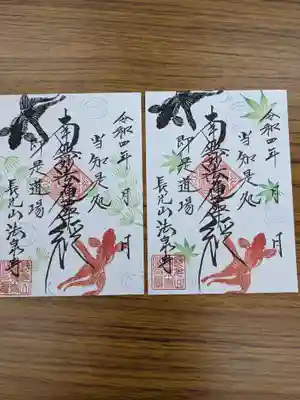 令和四年 月 日
当知是処
南無妙法蓮華経
即是道場
長光山法泉寺
令和四年 月 日
当知是処
南無妙法蓮華経
即是道場
長光山法泉寺